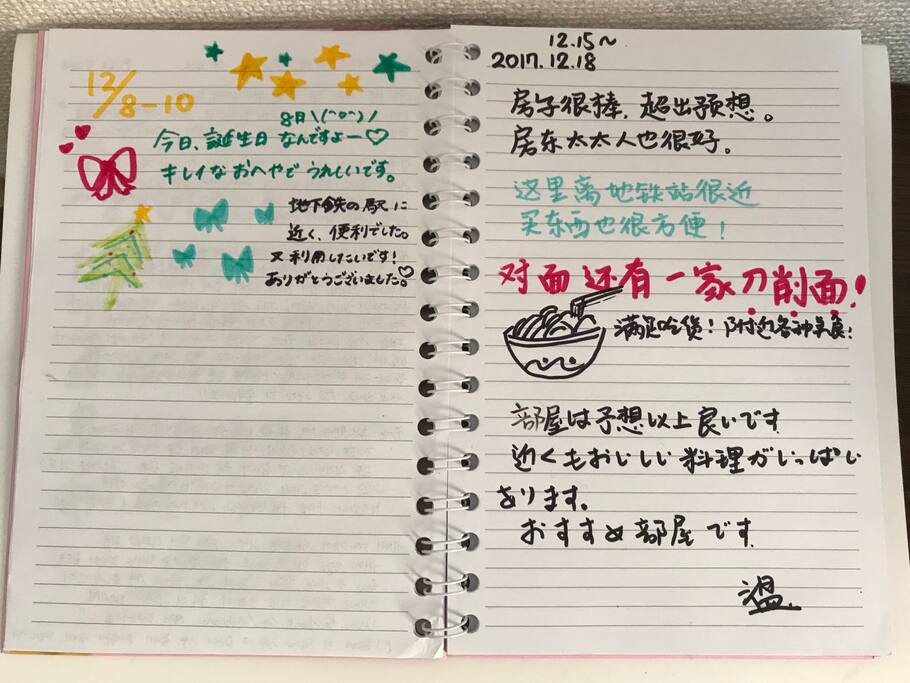 12/8-10
8日\(^o^)/
今日、誕生日なんですよー♡
キレイなおへやでうれしいです。
地下鉄の駅に
近く、便利でした。
又利用したいです!
ありがとうございました。♡
12.15~
2017.12.18
房子很棒,超出预想。
房东太太人也很好。
这里离地铁站很近
买东西也很方便!
对面还有一家刀削面!
满足吃货!附近各种美食!
部屋は予想以上良いです
近くもおいしい料理がいっぱい
あります。
おすすめ部屋です
温